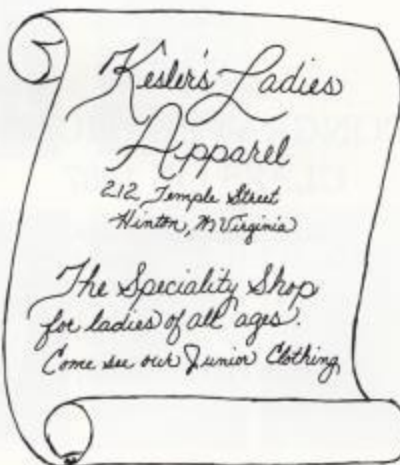 Kesler's Ladies
Apparel
212 Temple Street
Hinton, W Virginia
The Speciality Shop
for ladies of all ages.
Come see our Junior Clothing